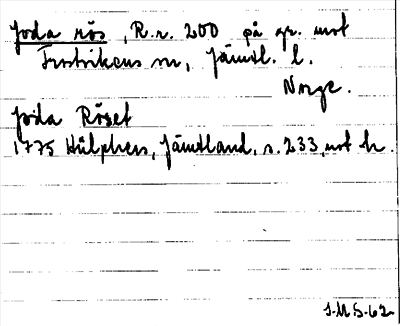 Joda rös, R.r. 200 på gr. mot
Frostvikens sn, Jämtl. l.
Norge.
Joda Röset
1775 Hülphers, Jämtland, s. 233, not h.
J.M.S. 62